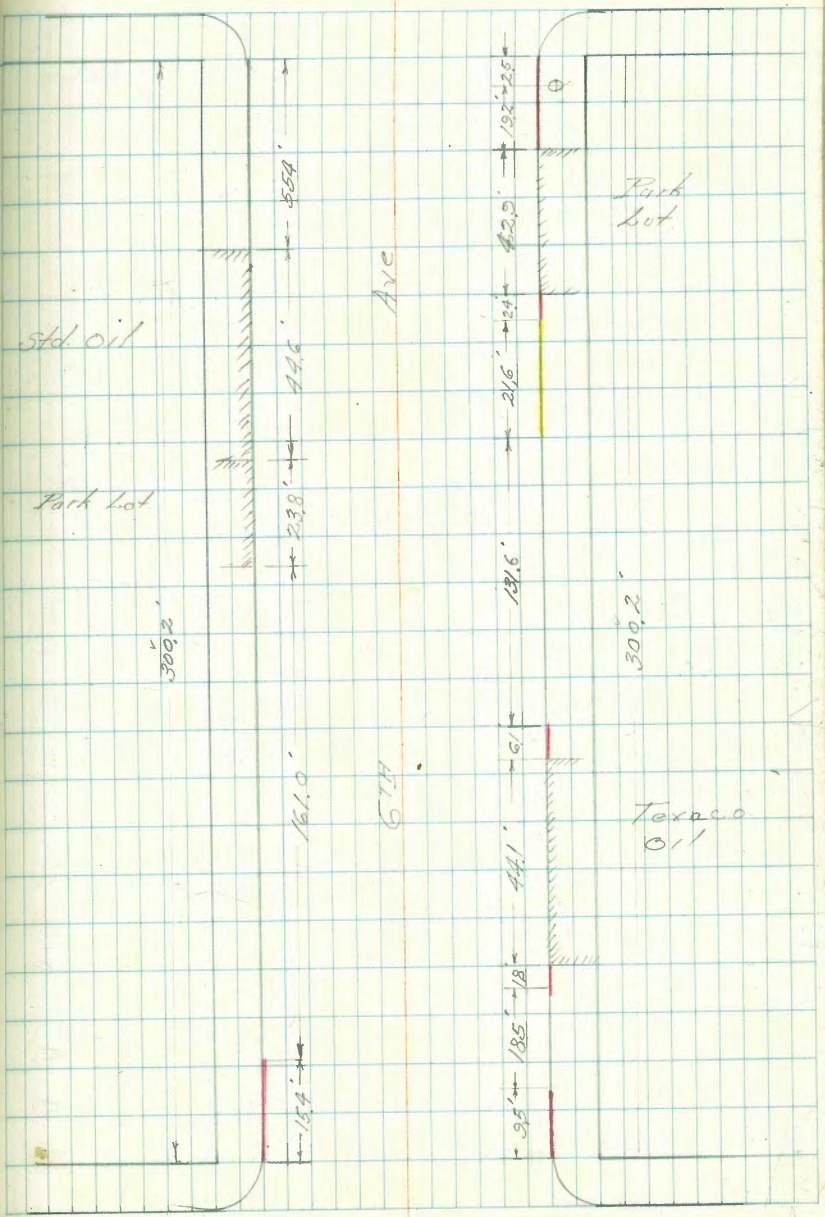 Std. Oil
Park Lot
300.2'
55.4'
44.6'
23.8'
161.0'
15.4'
Ave
6TH
25
19.2'
42.9'
2.4'
21.6'
131.6'
6.1
44.1'
1.8'
18.5'
9.5'
Park
Lot
300.2'
Texaco
Oil